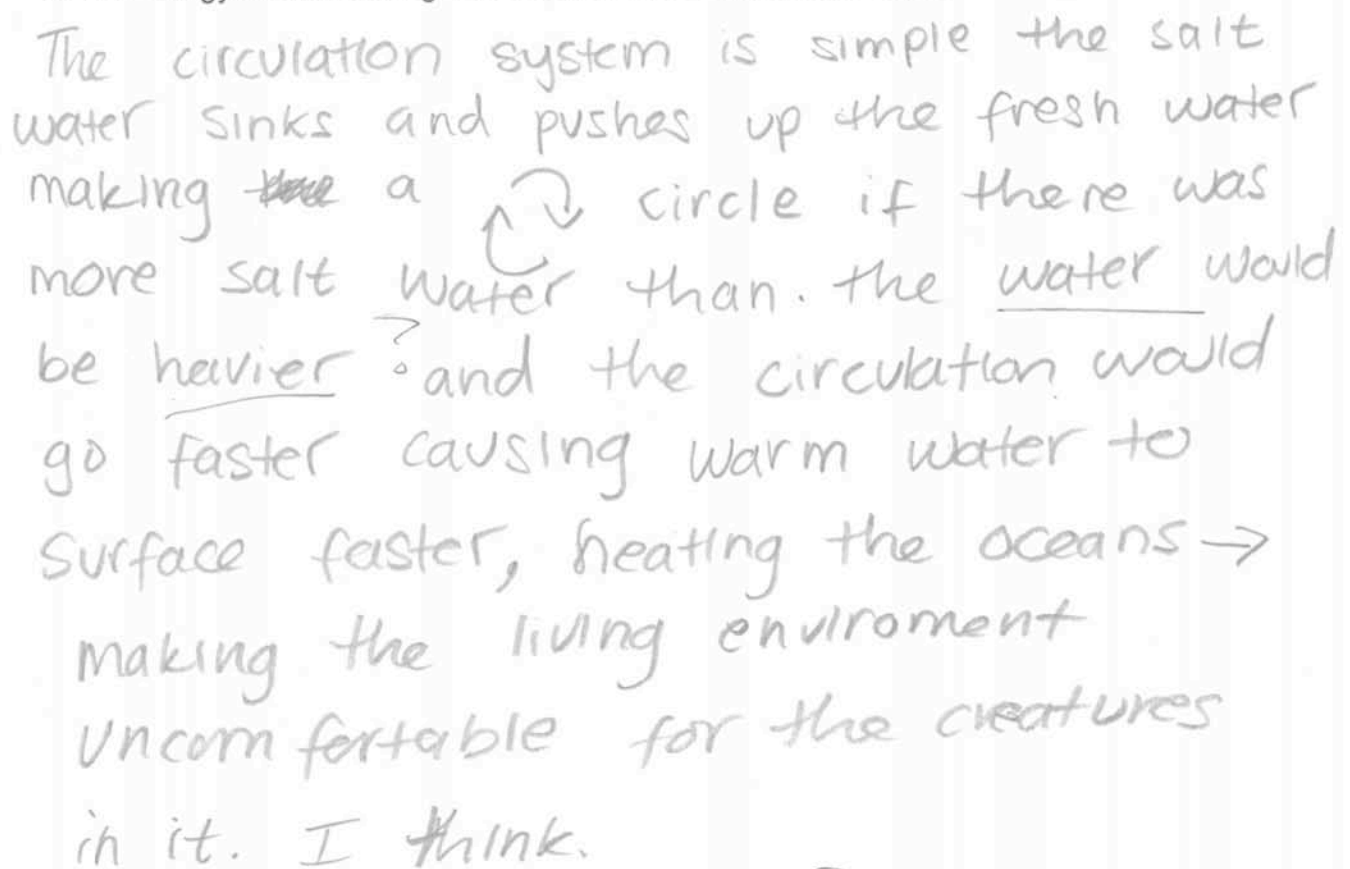 The circulation system is simple the salt
water sinks and pushes up the fresh water
making a circle if there was
more salt water than. the water would
be heavier ? and the circulation would
go faster causing warm water to
surface faster, heating the oceans →
making the living enviroment
uncomfortable for the creatures
in it. I think.